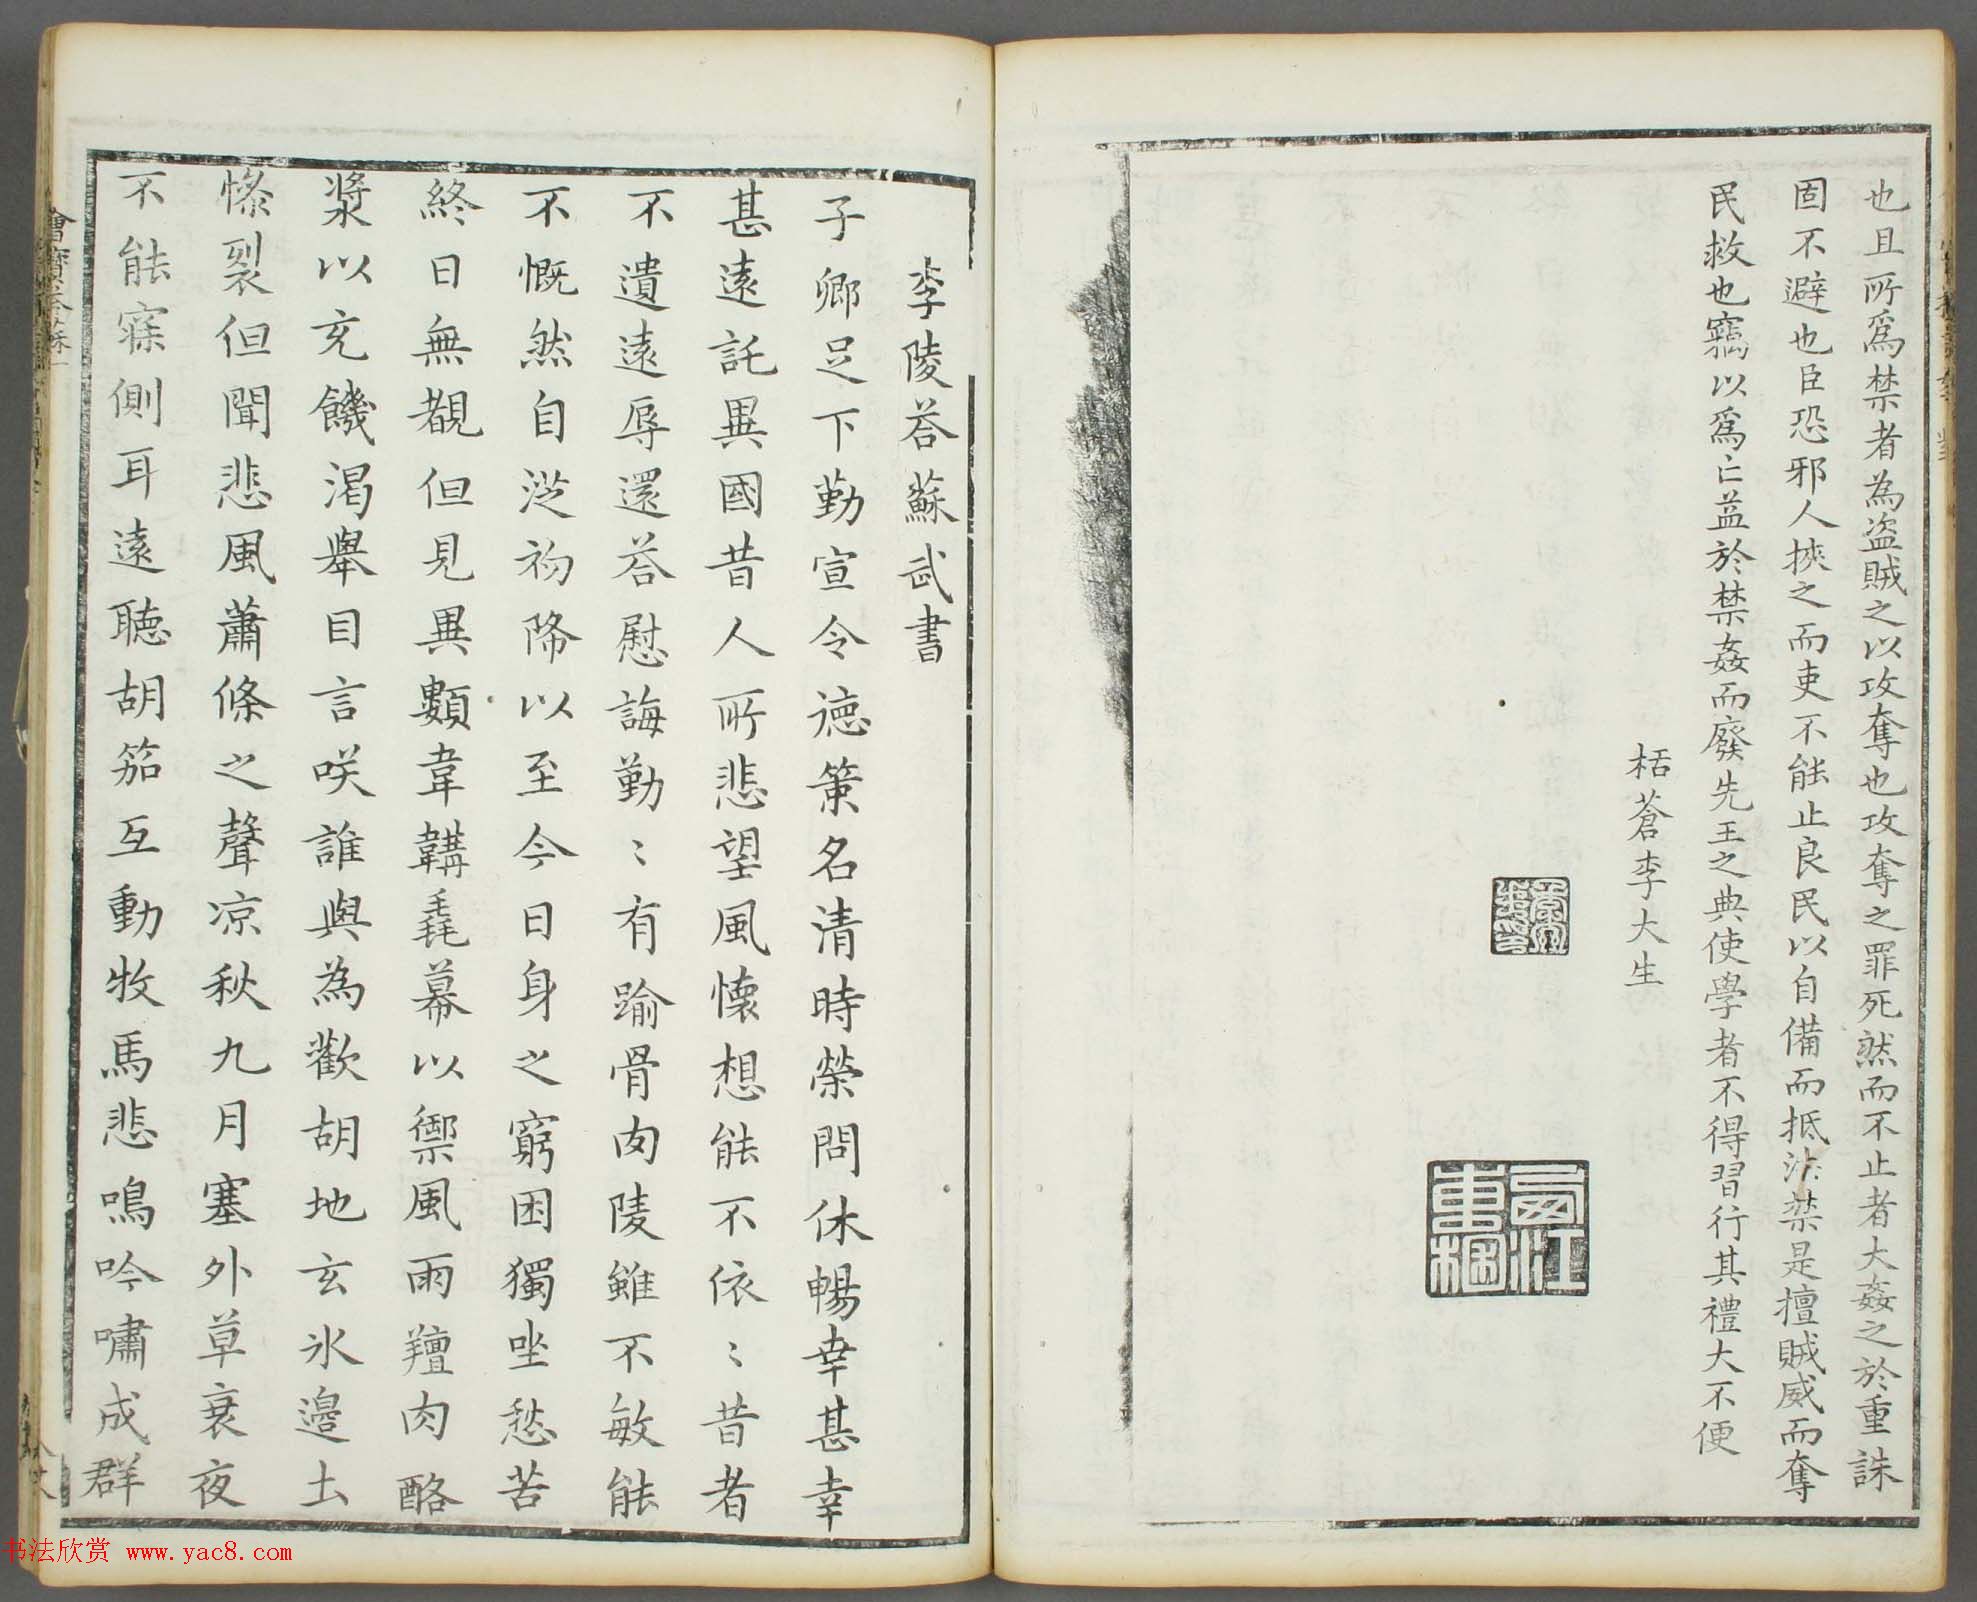 也且所爲禁者為盗賊之以攻奪也攻奪之罪死然而不止者大姦之於重誅
固不避也臣恐邪人挾之而吏不能止良民以自備而抵法禁是擅賊威而奪
民救也竊以爲亡益於禁姦而廢先王之典使學者不得習行其禮大不便
栝蒼李大生
李陵荅蘇武書
子卿足下勤宣令德策名清時榮問休暢幸甚幸
甚遠託異國昔人所悲望風懷想能不依〻昔者
不遺遠辱還荅慰誨勤〻有踰骨肉陵雖不敏能
不慨然自從初降以至今日身之窮困獨坐愁苦
終日無覩但見異類韋韝毳幕以禦風雨羶肉酪
漿以充饑渴舉目言咲誰與為歡胡地玄氷邉土
慘裂但聞悲風蕭條之聲凉秋九月塞外草衰夜
不能寐側耳遠聽胡笳互動牧馬悲鳴吟嘯成群
书法欣赏 www.yac8.com